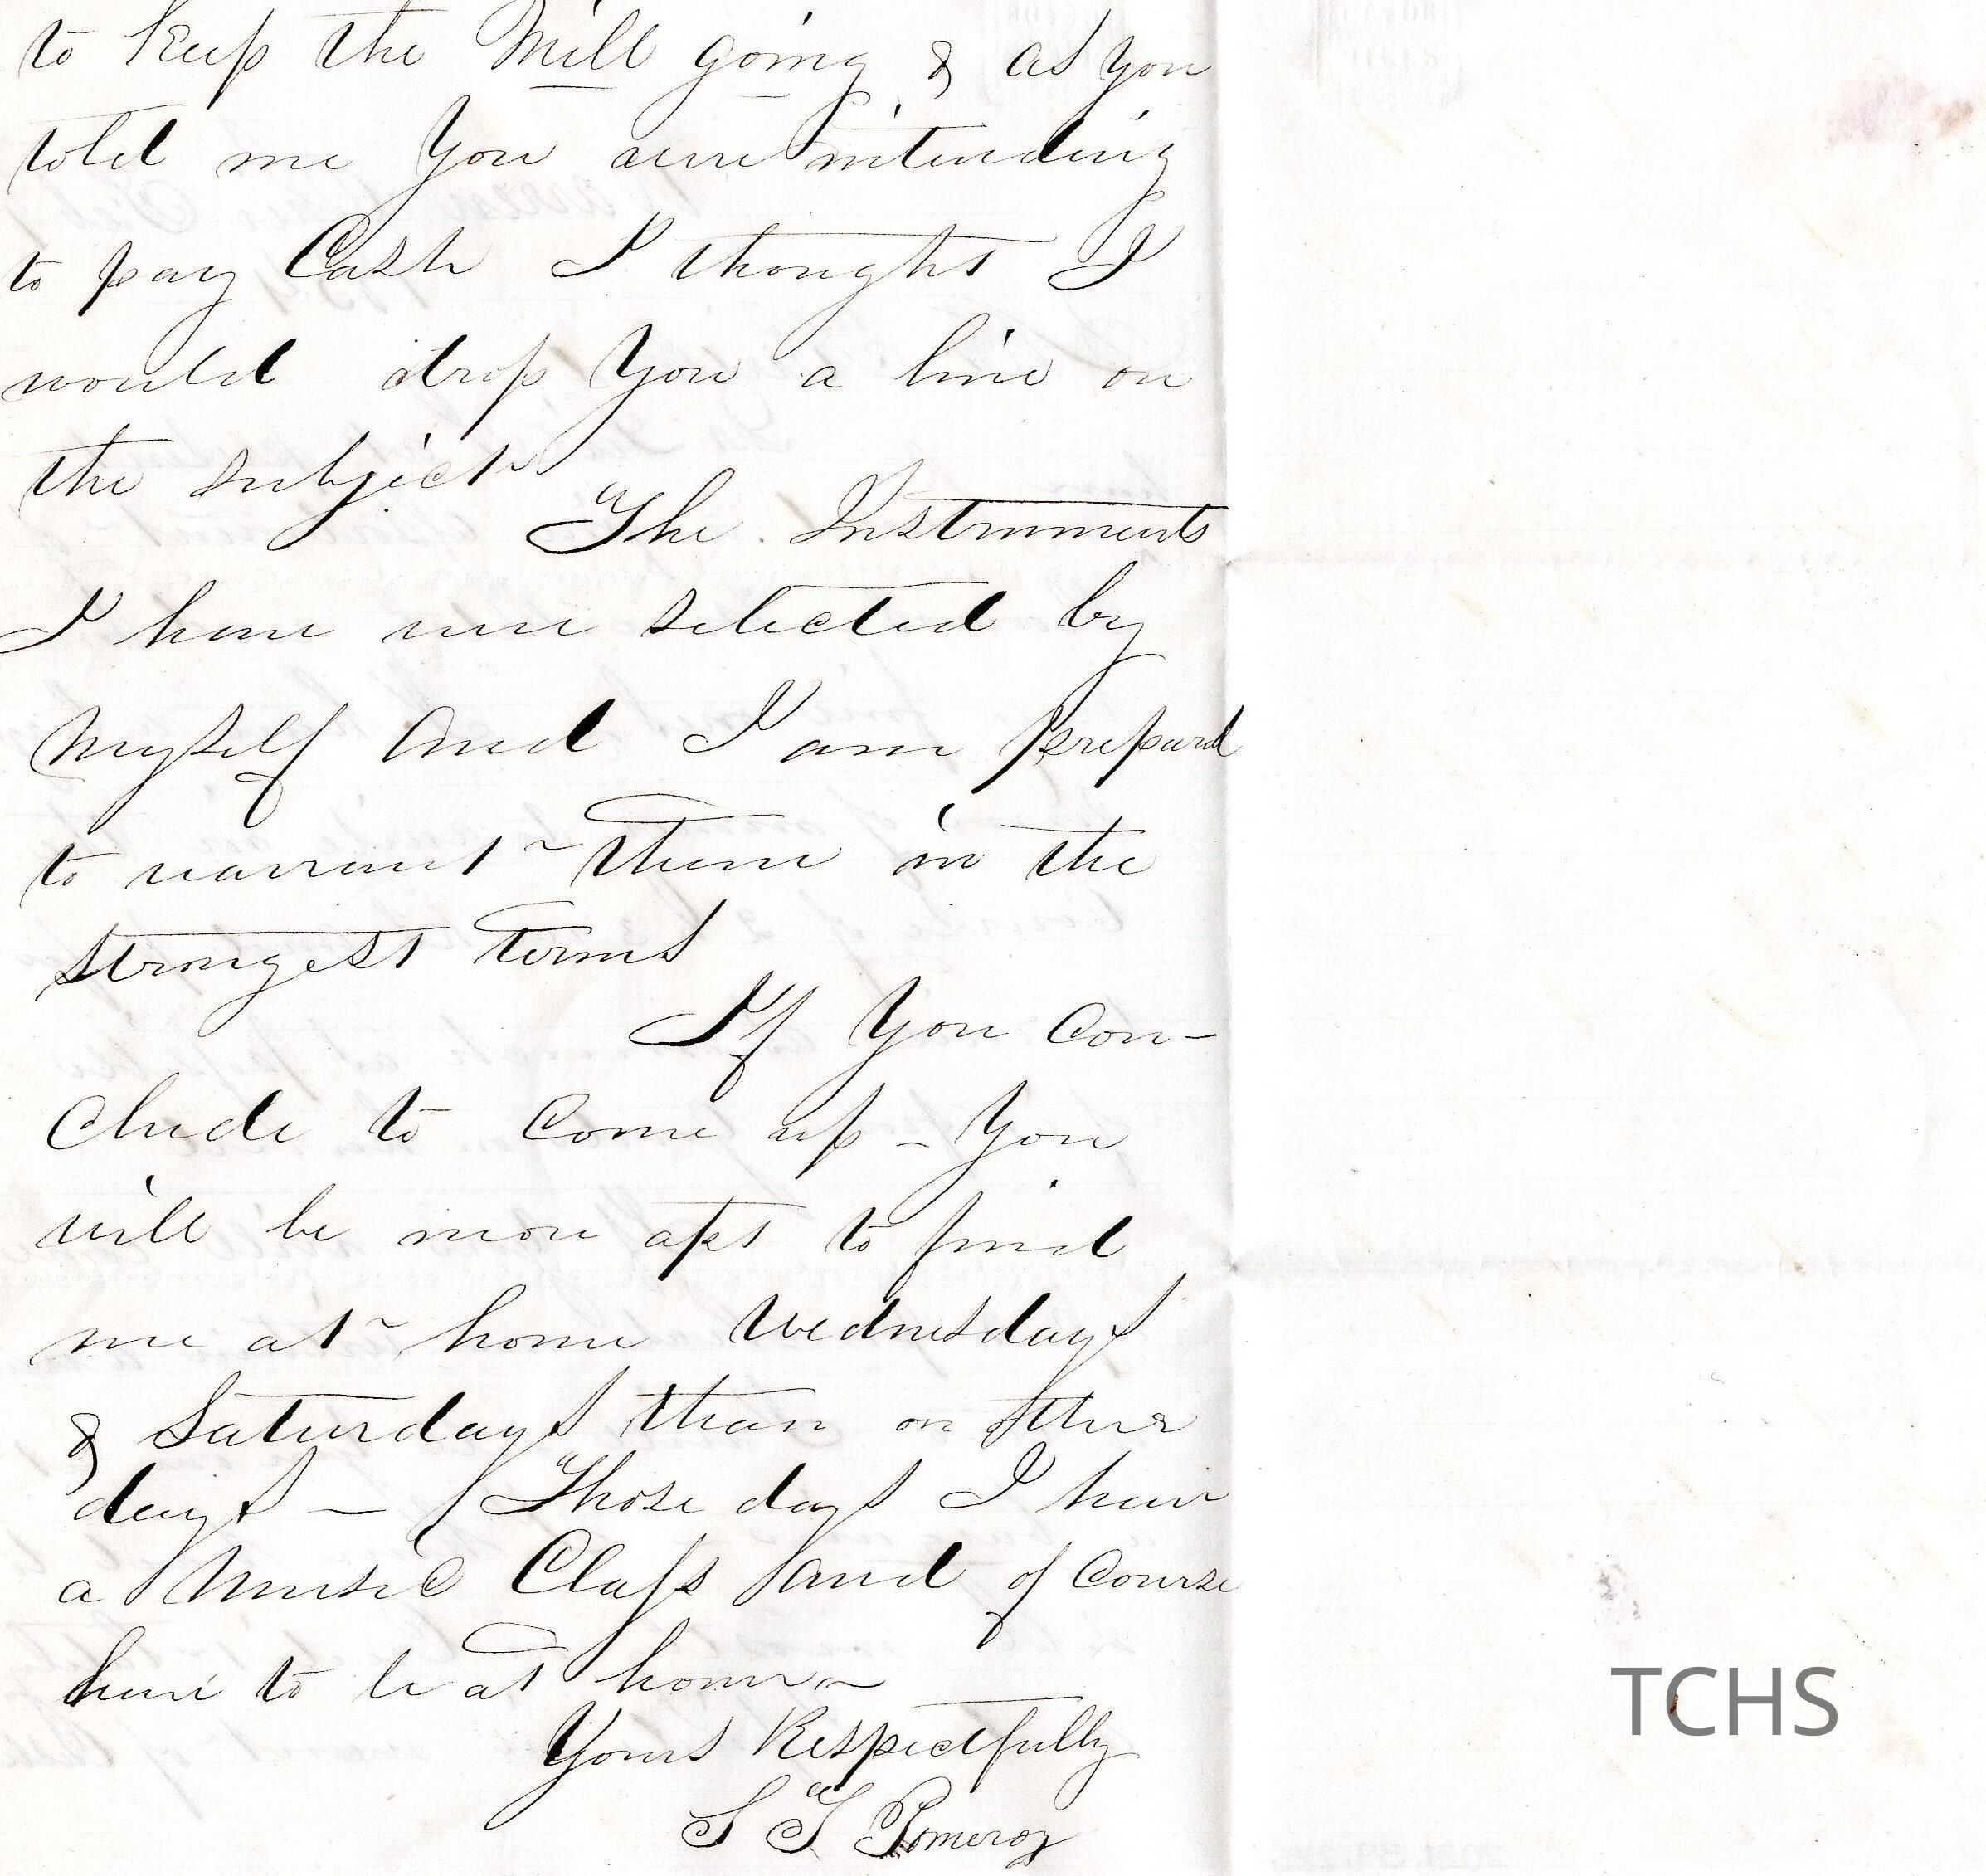 to keep the Mill going & as you
told me you were intending
to pay Cash I thought I
would drop you a line on
the subject
The Instruments
I have were selected by
myself and I am prepard
to warrant them in the
strongest terms
If you con-
clude to come up - you
will be more apt to find
me at home Wednesdays
& Saturdays than on other
days - (Those days I have
a Music Class and of course
have to be at home -
Yours Respectfully
S T Pomeroy
TCHS